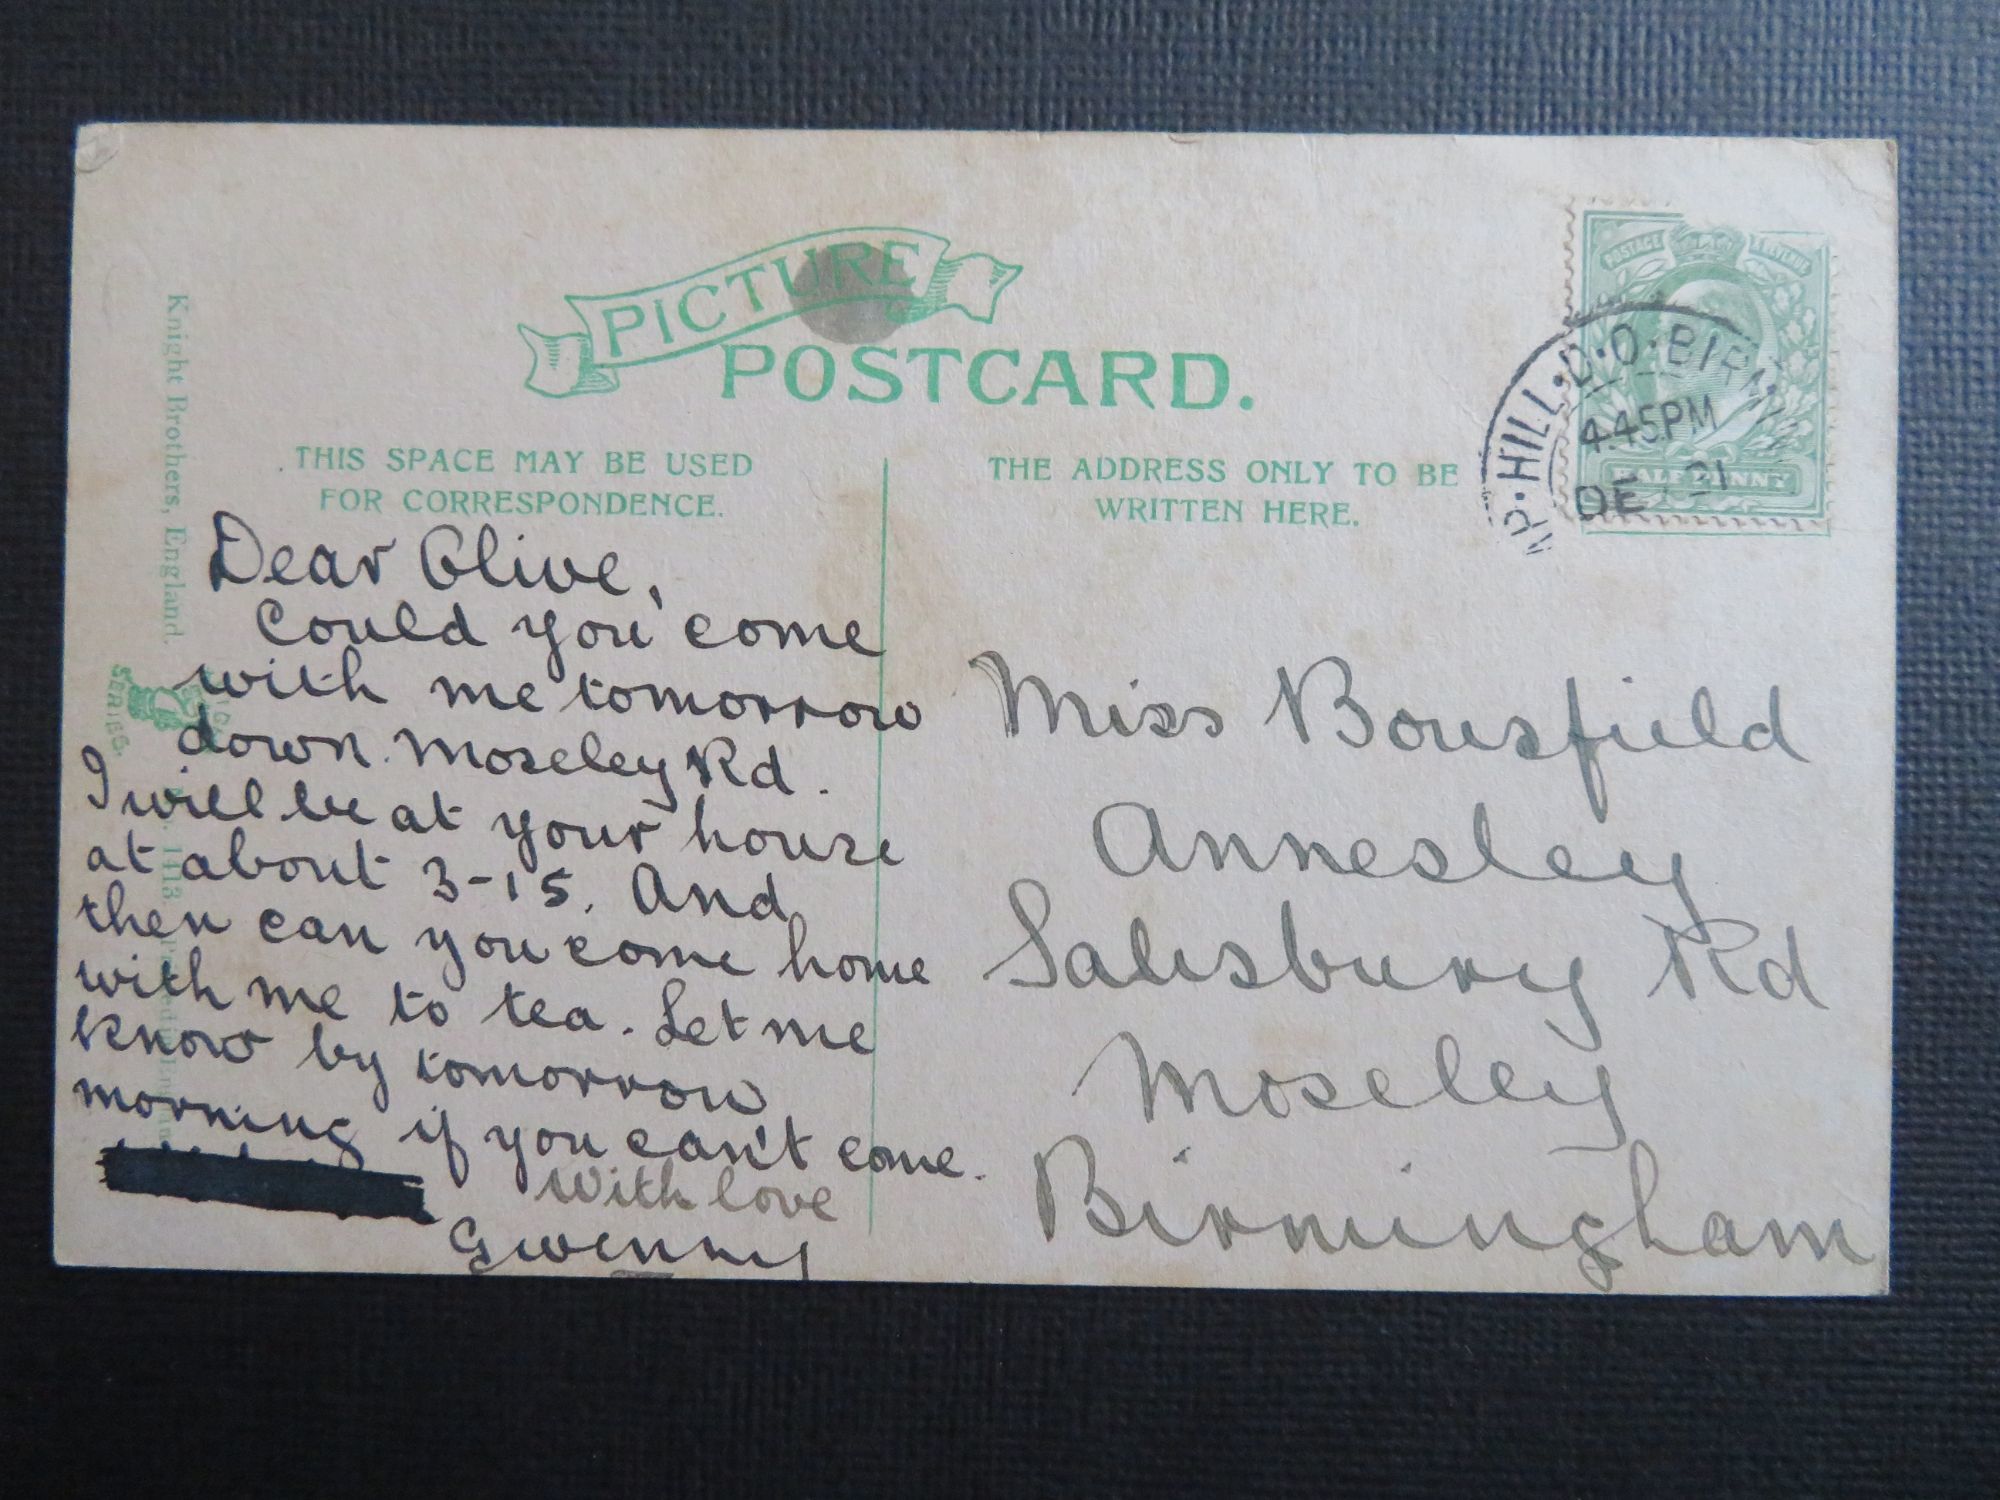 PICTURE
POSTCARD.
THIS SPACE MAY BE USED
FOR CORRESPONDENCE.
THE ADDRESS ONLY TO BE
WRITTEN HERE.
POSTAGE & REVENUE
HALF PENNY
HILL · B.O · BIRM
4.45PM
DE 21
Knight Brothers, England.
SERIES.
Dear Olive,
Could you come
with me tomorrow
down Moseley Rd.
I will be at your house
at about 3-15. And
then can you come home
with me to tea. Let me
know by tomorrow
morning if you can't come.
With love
Gwenny
Miss Bousfield
Annesley
Salisbury Rd
Moseley
Birmingham